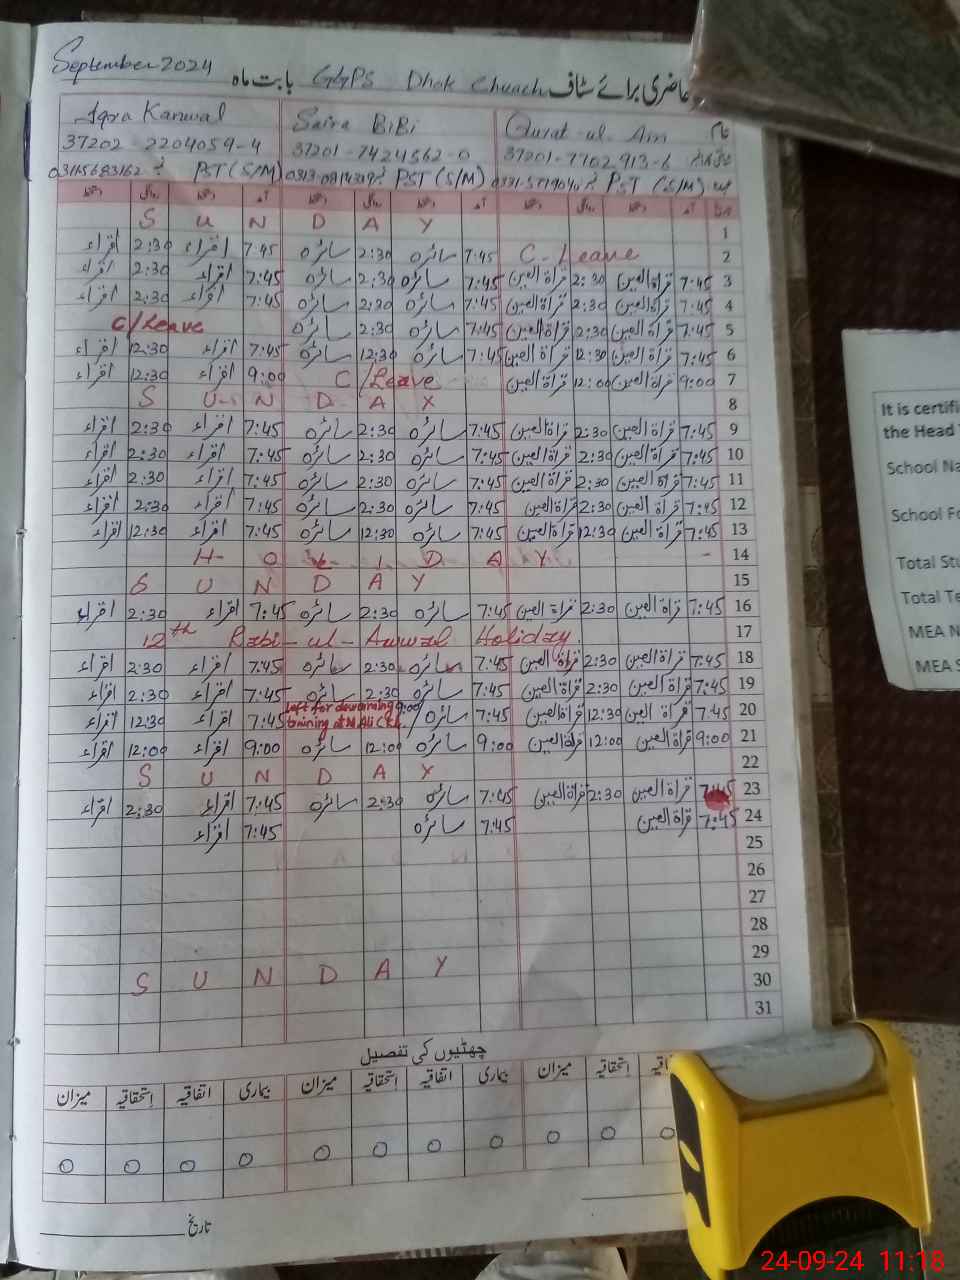 September 2024 عاضری برائے سٹاف GGPS Dhok Chunch بابت ماہ
Iqra Kanwal Saira BiBi Qurat-ul-Ain نام
37202-2204059-4 37201-7424562-0 37201-7702913-6
PST (S/M) PST (S/M) PST (S/M)
S U N D A Y 1
اقراء 2:30 اقراء 7:45 سائرہ 2:30 سائرہ 7:45 C-Leave 2
اقراء 2:30 اقراء 7:45 سائرہ 2:30 سائرہ 7:45 قراۃ العین 2:30 قراۃ العین 7:45 3
اقراء 2:30 اقراء 7:45 سائرہ 2:30 سائرہ 7:45 قراۃ العین 2:30 قراۃ العین 7:45 4
C/Leave سائرہ 2:30 سائرہ 7:45 قراۃ العین 2:30 قراۃ العین 7:45 5
اقراء 12:30 اقراء 7:45 سائرہ 12:30 سائرہ 7:45 قراۃ العین 12:30 قراۃ العین 7:45 6
اقراء 12:30 اقراء 9:00 C/Leave قراۃ العین 12:00 قراۃ العین 9:00 7
S U N D A Y 8
اقراء 2:30 اقراء 7:45 سائرہ 2:30 سائرہ 7:45 قراۃ العین 2:30 قراۃ العین 7:45 9
اقراء 2:30 اقراء 7:45 سائرہ 2:30 سائرہ 7:45 قراۃ العین 2:30 قراۃ العین 7:45 10
اقراء 2:30 اقراء 7:45 سائرہ 2:30 سائرہ 7:45 قراۃ العین 2:30 قراۃ العین 7:45 11
اقراء 2:30 اقراء 7:45 سائرہ 2:30 سائرہ 7:45 قراۃ العین 2:30 قراۃ العین 7:45 12
اقراء 12:30 اقراء 7:45 سائرہ 12:30 سائرہ 7:45 قراۃ العین 12:30 قراۃ العین 7:45 13
H O L I D A Y 14
S U N D A Y 15
اقراء 2:30 اقراء 7:45 سائرہ 2:30 سائرہ 7:45 قراۃ العین 2:30 قراۃ العین 7:45 16
12th Rabi-ul-Awwal Holiday 17
اقراء 2:30 اقراء 7:45 سائرہ 2:30 سائرہ 7:45 قراۃ العین 2:30 قراۃ العین 7:45 18
اقراء 2:30 اقراء 7:45 سائرہ 2:30 سائرہ 7:45 قراۃ العین 2:30 قراۃ العین 7:45 19
اقراء 12:30 اقراء 7:45 Left for deworming training at 9:00 سائرہ 7:45 قراۃ العین 12:30 قراۃ العین 7:45 20
اقراء 12:00 اقراء 9:00 سائرہ 12:00 سائرہ 9:00 قراۃ العین 12:00 قراۃ العین 9:00 21
S U N D A Y 22
اقراء 2:30 اقراء 7:45 سائرہ 2:30 سائرہ 7:45 قراۃ العین 2:30 قراۃ العین 7:45 23
اقراء 7:45 سائرہ 7:45 قراۃ العین 7:45 24
25
26
27
28
29
S U N D A Y 30
31
چھٹیوں کی تفصیل
میزان استحقاقیہ اتفاقیہ بیماری میزان استحقاقیہ اتفاقیہ بیماری میزان استحقاقیہ
0 0 0 0 0 0 0 0 0 0 0
تاریخ
It is certifi
the Head
School Na
School Fo
Total Stu
Total Te
MEA N
MEA S
24-09-24 11:18